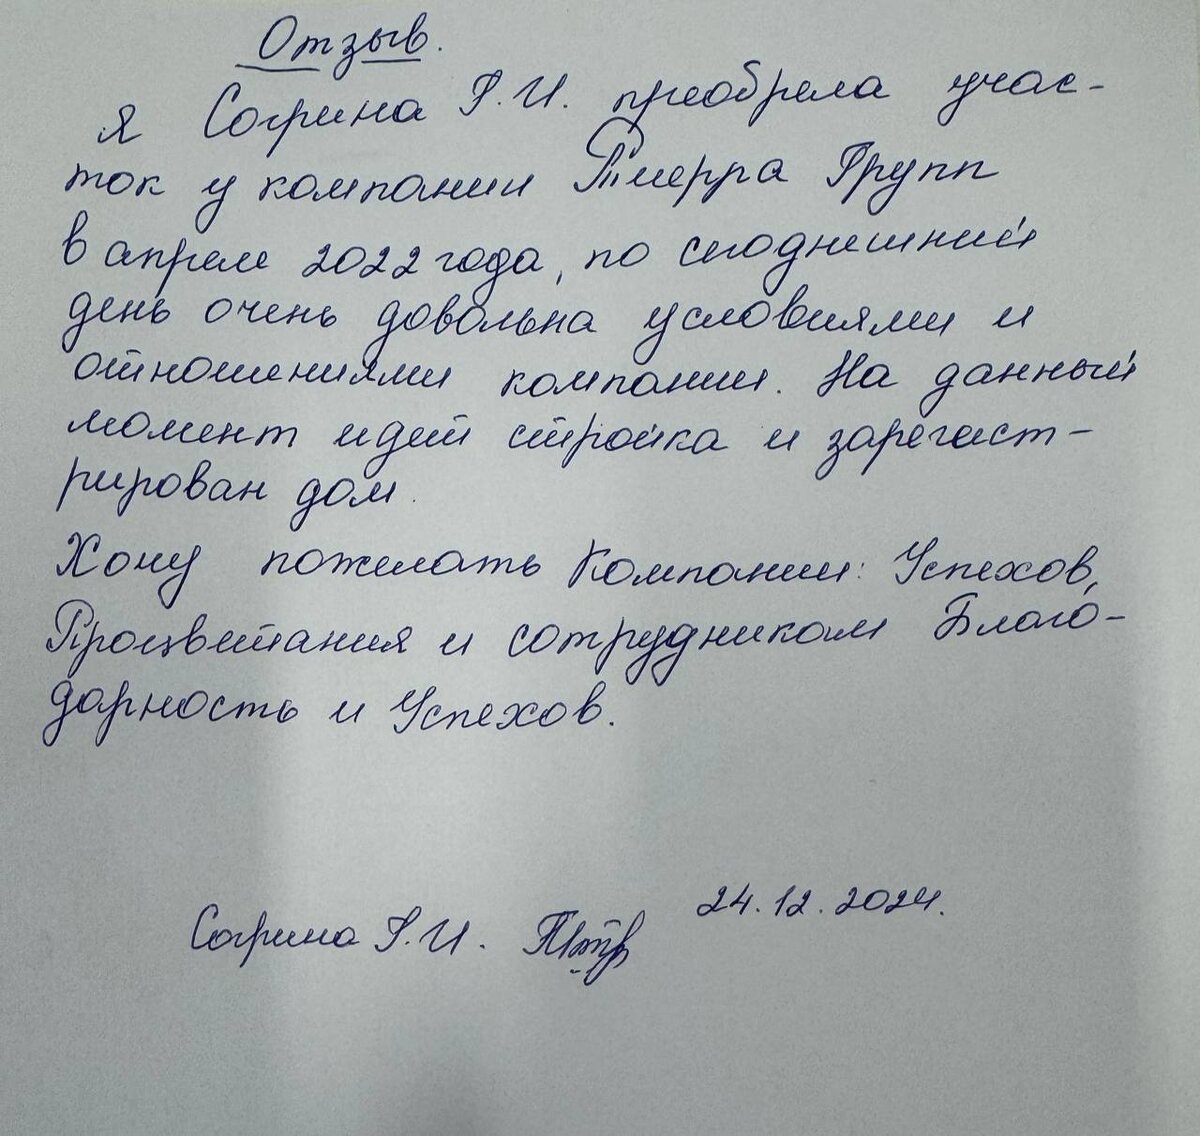 Отзыв.
Я Согрина Г.И. преобрела учас-
ток у компании Тиерра Групп
в апреле 2022 года, по сегоднешний
день очень довольна условиями и
отношениями компании. На данный
момент идет стройка и зарегист-
рирован дом.
Хочу пожелать Компании: Успехов,
Процветания и сотрудникам Благо-
дарность и Успехов.
Согрина Г.И. 24.12.2024.